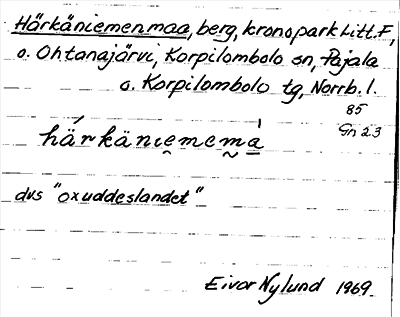 Härkäniemenmaa, berg, kronopark Litt. F,
o. Ohtanajärvi, Korpilombolo sn, Pajala
o. Korpilombolo tg, Norrb. l.
85
Gn 23
hä́rkäniemema̍
dvs "oxuddeslandet"
Eivor Nylund 1969